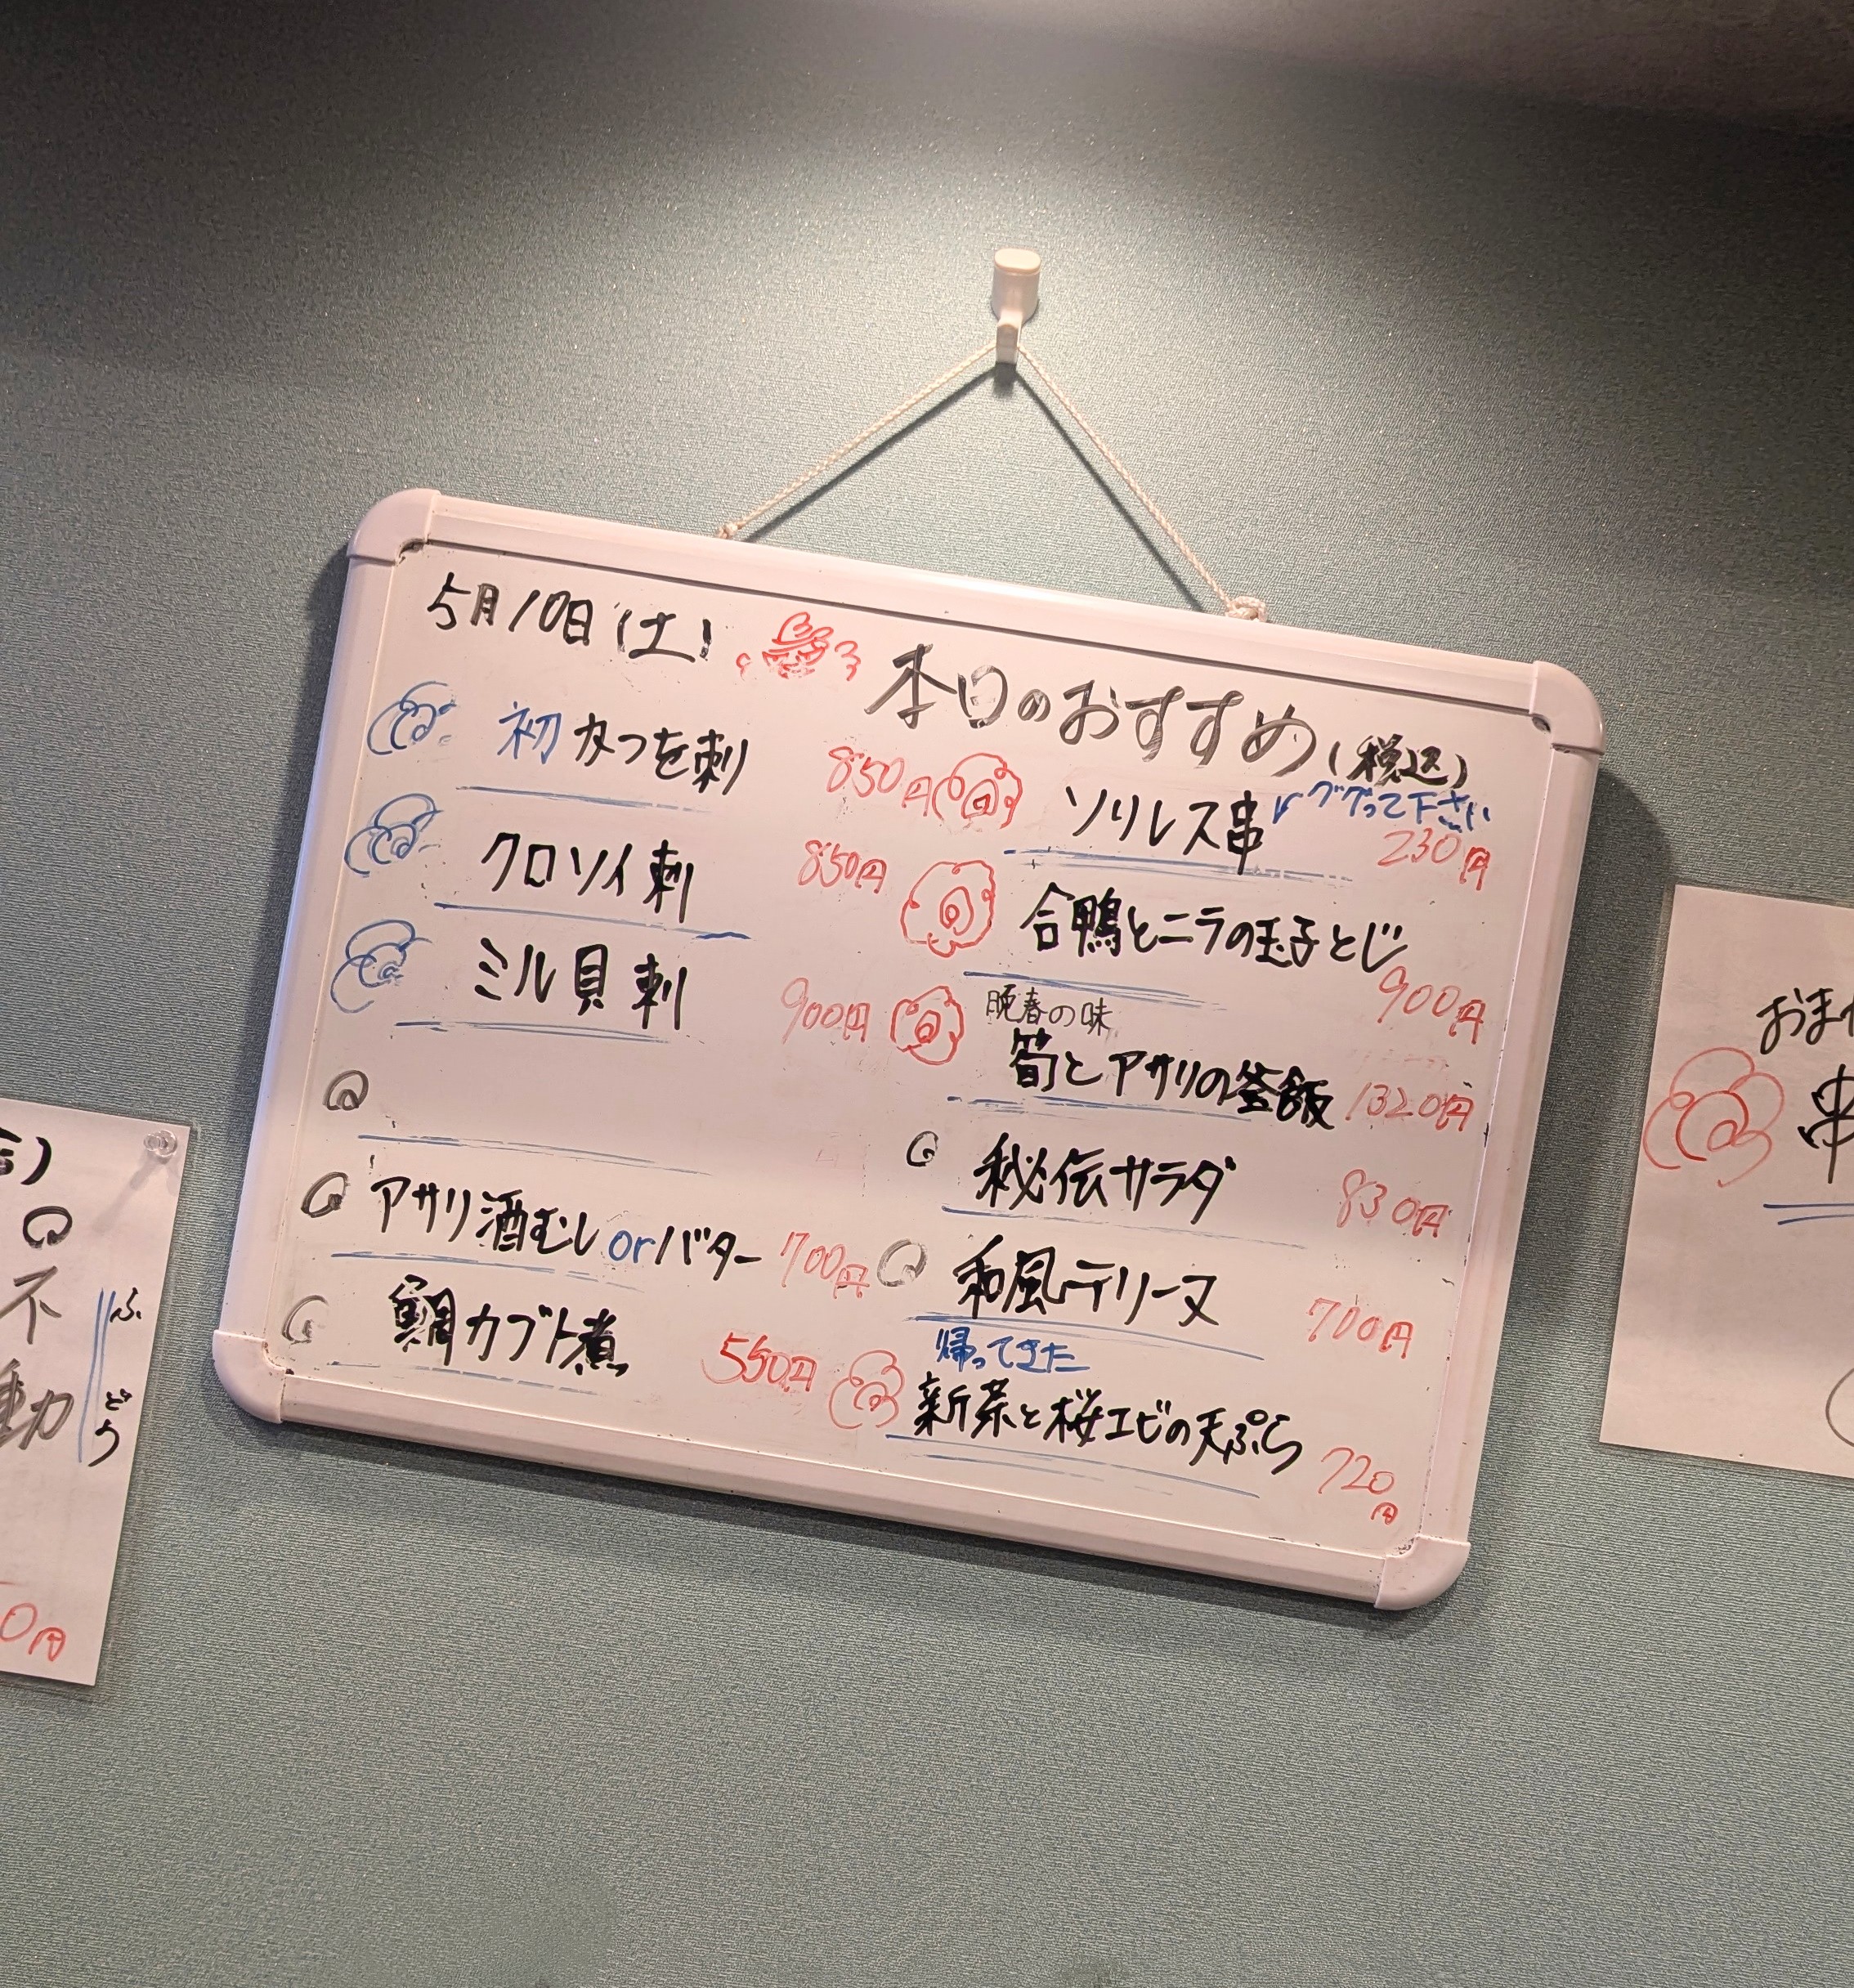 5月10日(土)
本日のおすすめ(税込)
初かつを刺 850円
クロソイ刺 850円
ミル貝刺 900円
アサリ酒むしorバター 700円
鯛カブト煮 550円
ソリレス串
ググって下さい
230円
合鴨とニラの玉子とじ
900円
晩春の味
筍とアサリの釜飯 1320円
秘伝サラダ 830円
和風テリーヌ 700円
帰ってきた
新茶と桜エビの天ぷら
720円
不動
ふどう
0円
おま
串